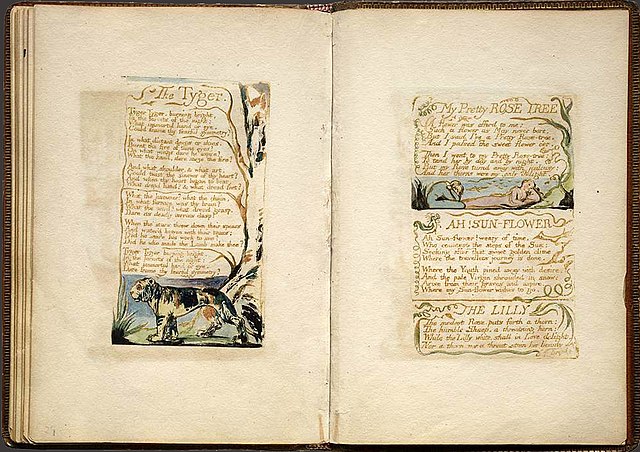 The Tyger.
Tyger Tyger, burning bright,
In the forests of the night;
What immortal hand or eye,
Could frame thy fearful symmetry?
In what distant deeps or skies,
Burnt the fire of thine eyes?
On what wings dare he aspire?
What the hand, dare sieze the fire?
And what shoulder, & what art,
Could twist the sinews of thy heart?
And when thy heart began to beat,
What dread hand? & what dread feet?
What the hammer? what the chain,
In what furnace was thy brain?
What the anvil? what dread grasp,
Dare its deadly terrors clasp?
When the stars threw down their spears
And water'd heaven with their tears:
Did he smile his work to see?
Did he who made the Lamb make thee?
Tyger Tyger burning bright,
In the forests of the night:
What immortal hand or eye,
Dare frame thy fearful symmetry?
My Pretty ROSE TREE
A flower was offerd to me:
Such a flower as May never bore.
But I said I've a Pretty Rose-tree,
And I passed the sweet flower o'er.
Then I went to my Pretty Rose-tree:
To tend her by day and by night.
But my Rose turnd away with jealousy:
And her thorns were my only delight.
AH! SUN-FLOWER
Ah Sun-flower! weary of time,
Who countest the steps of the Sun:
Seeking after that sweet golden clime
Where the travellers journey is done.
Where the Youth pined away with desire,
And the pale Virgin shrouded in snow:
Arise from their graves and aspire,
Where my Sun-flower wishes to go.
THE LILLY
The modest Rose puts forth a thorn:
The humble Sheep, a threatning horn:
While the Lilly white, shall in Love delight,
Nor a thorn nor a threat stain her beauty bright